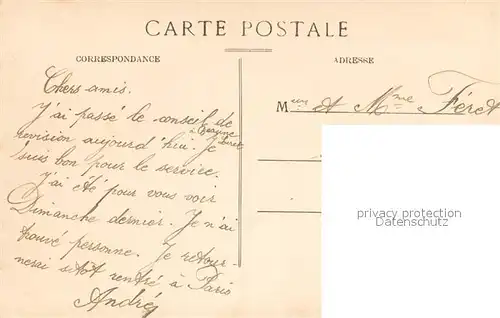 CARTE POSTALE
CORRESPONDANCE
ADRESSE
Chers amis.
J'ai passé le conseil de
revision aujourd'hui. Je
suis bon pour le service.
J'ai été pour vous voir
Dimanche dernier. Je n'ai
trouvé personne. Je retour-
nerai sitôt rentré à Paris
André
M et Mme Féret
privacy protection
Datenschutz